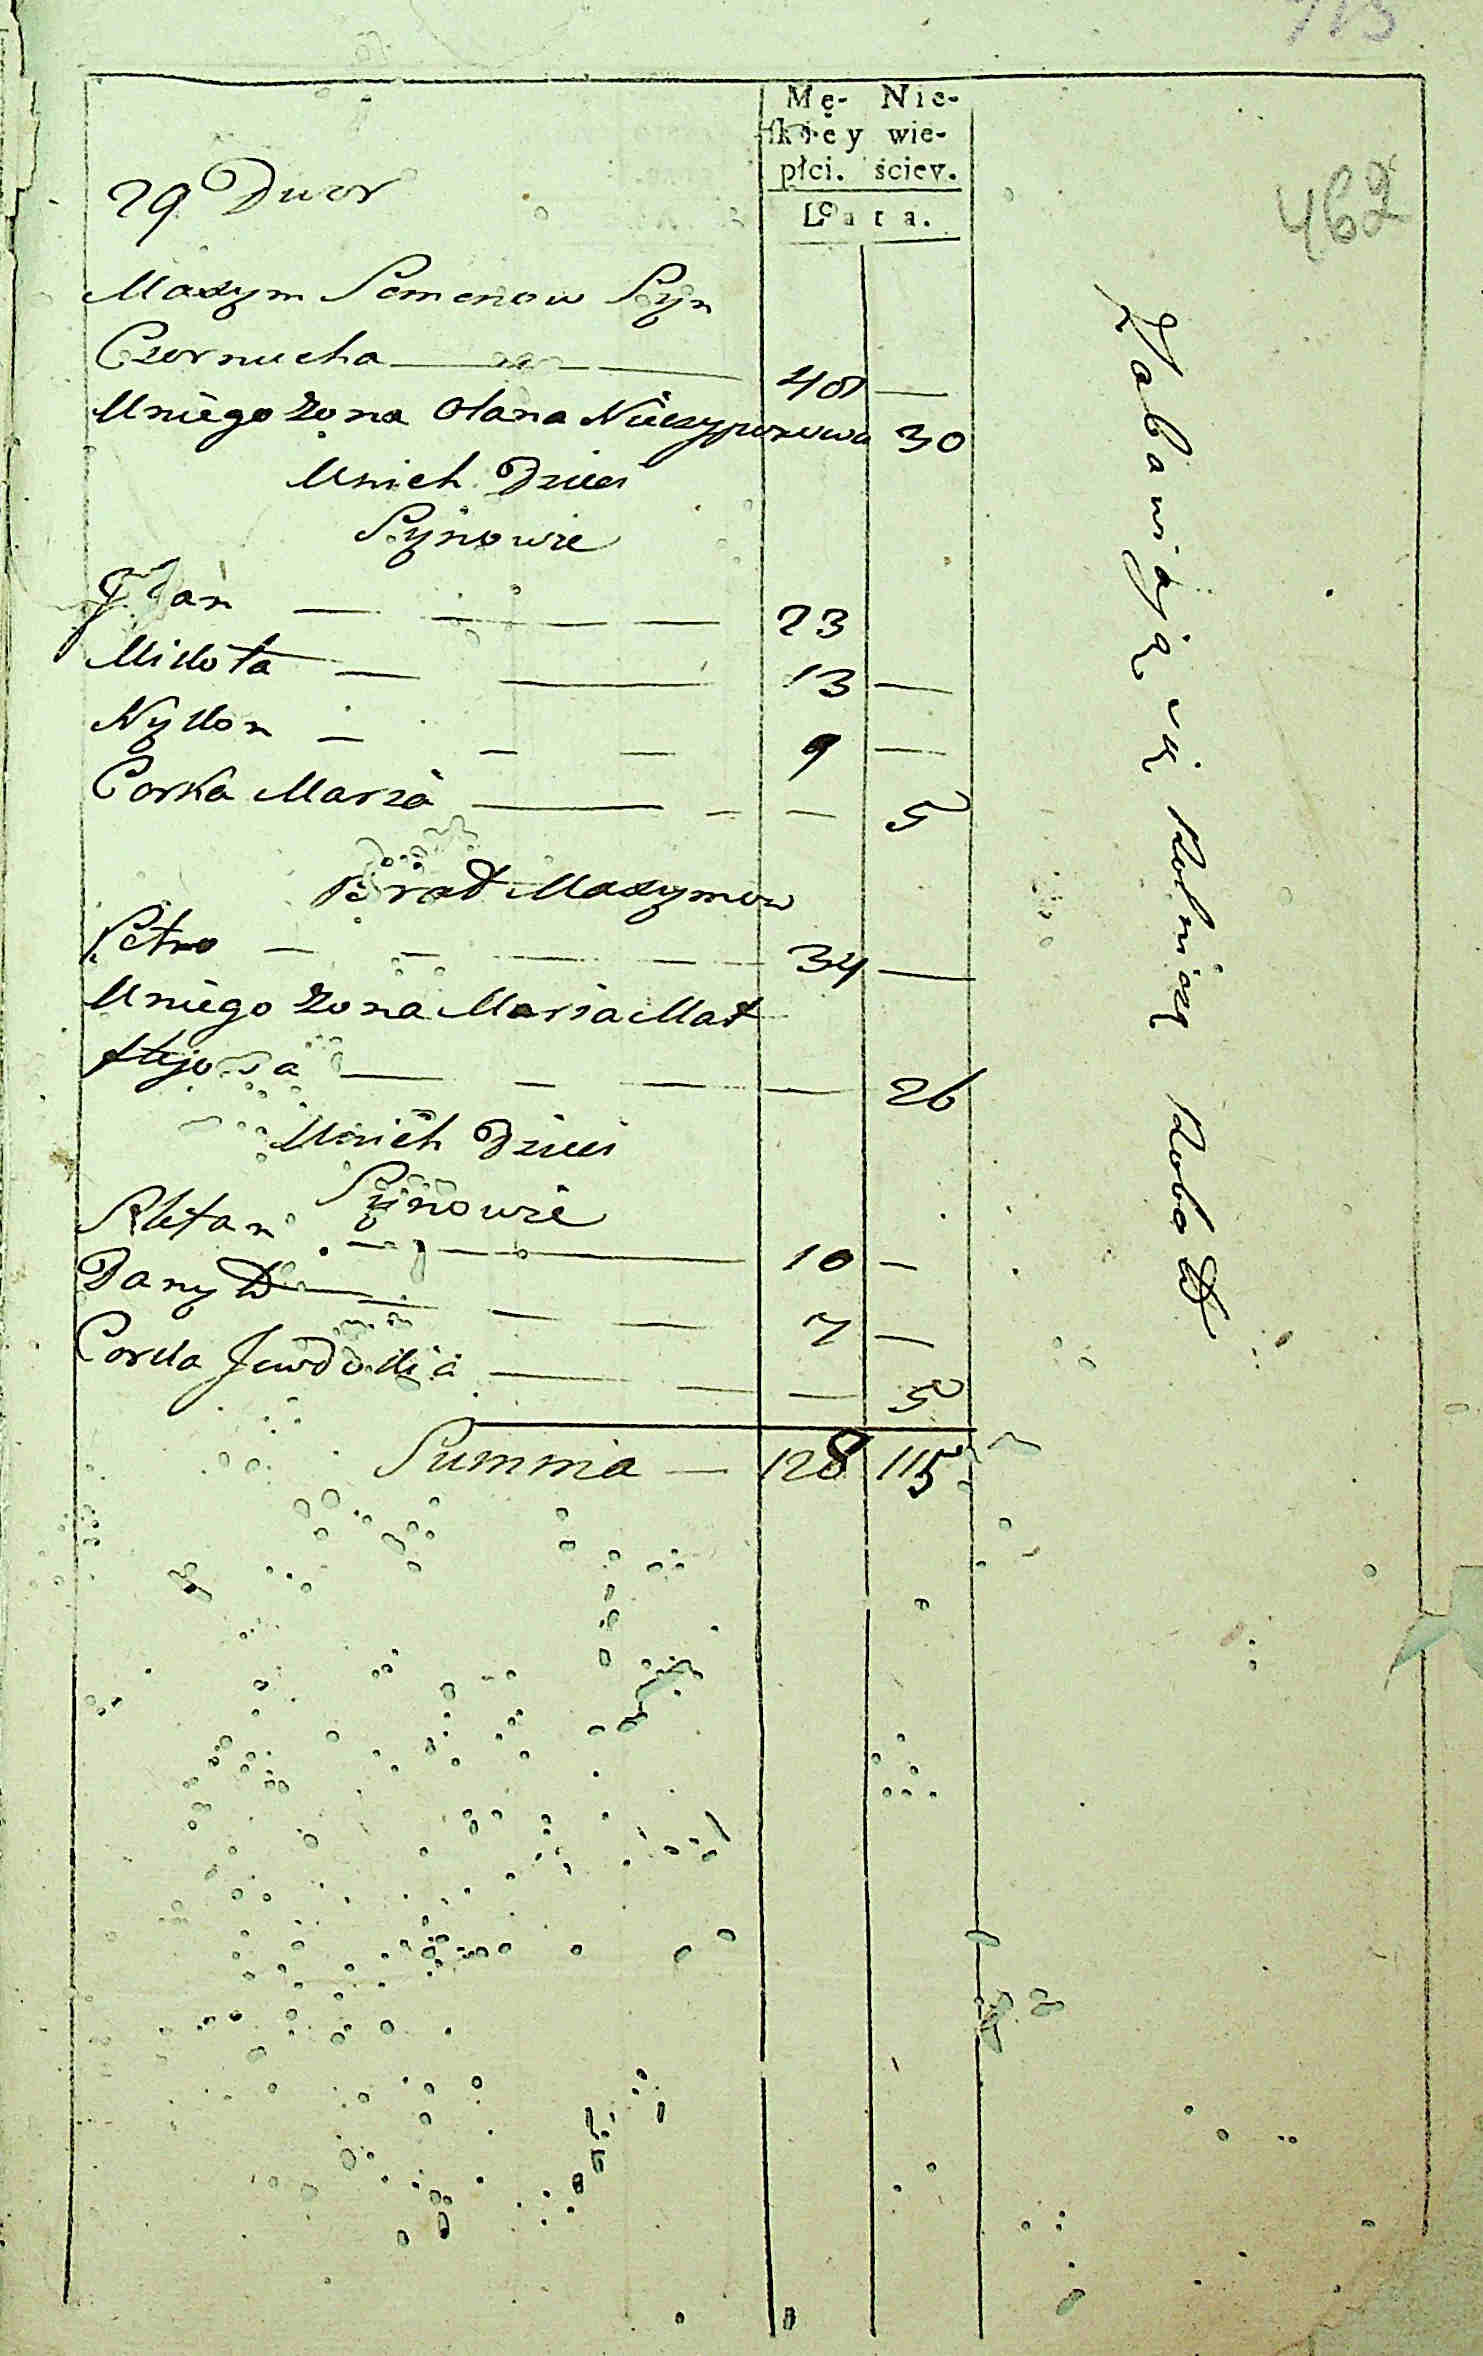 462
Mę- Nie-
skiey wie-
płci. ściey.
Lata.
29 Dwor
Maxym Semenow Syn
Czornucha 40 —
Uniego Zona Olana Niczyporowa 30
Unich Dzieci
Synowie
23
Mikołta 13 —
Nykon 9 —
Corka Marza — 5
Brat Maxymow
Petro 34 —
Uniego Zona Marza Mat
— 26
Unich Dzieci
Synowie
10 —
Danyło 7 —
Corka Jewdokia — 5
Summa — 128 115
Zabawiają się Rolniczą Robotą